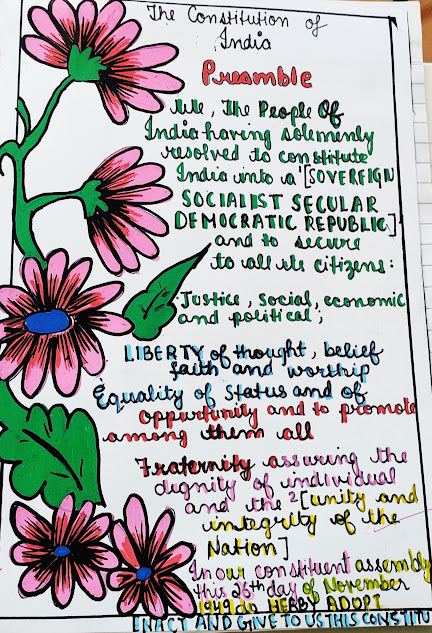 The Constitution of
India
Preamble
We, The People Of
India having solemenly
resolved to constitute
India into a '[SOVEREIGN
SOCIALIST SECULAR
DEMOCRATIC REPUBLIC]
and to secure
to all its citizens:
Justice, social, economic
and political;
LIBERTY of thought, belief
faith and worship
Equality of Status and of
opportunity and to promote
among them all
Fraternity assuring the
dignity of individual
and the 2[unity and
integrity of the
Nation]
In our constituent assembly
this 26th day of November
1949 do HERBY ADOPT
ENACT AND GIVE TO US THIS CONSTITU